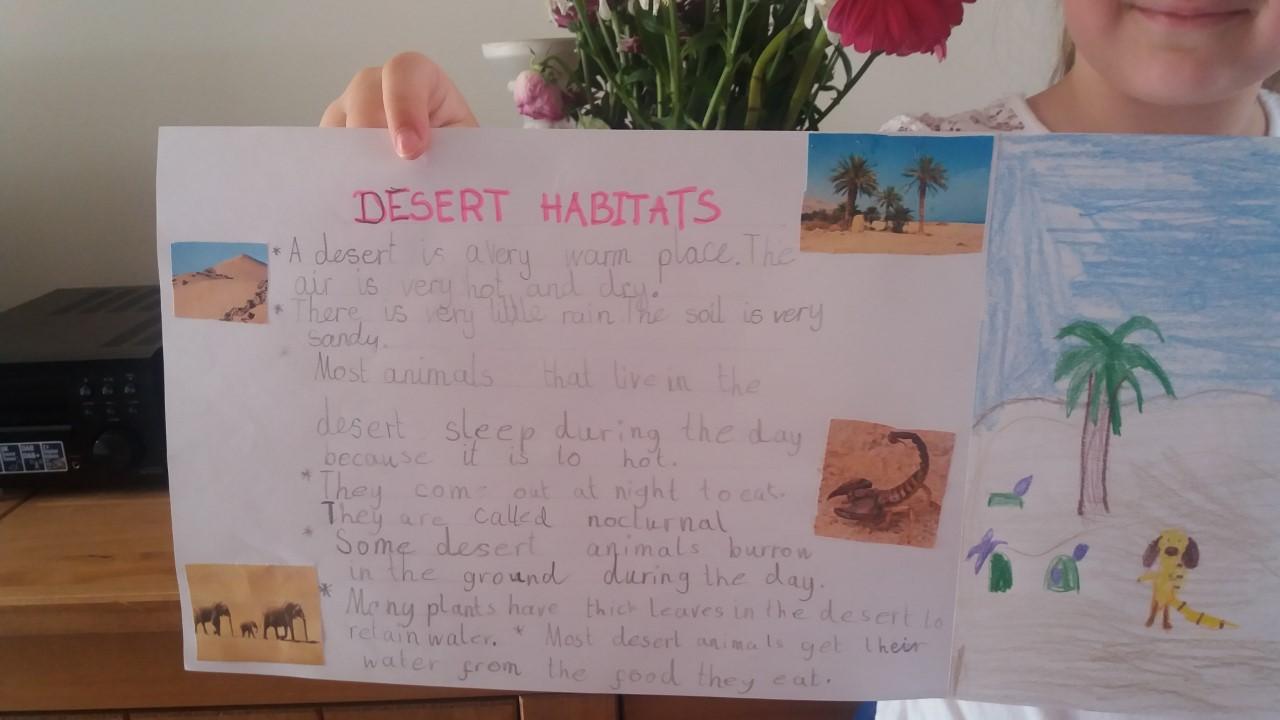 DESERT HABITATS
* A desert is a very warm place. The
air is very hot and dry.
* There is very little rain The soil is very
sandy.
Most animals that live in the
desert sleep during the day
because it is to hot.
* They come out at night to eat.
They are called nocturnal
* Some desert animals burrow
in the ground during the day.
* Many plants have thick leaves in the desert to
retain water. * Most desert animals get their
water from the food they eat.